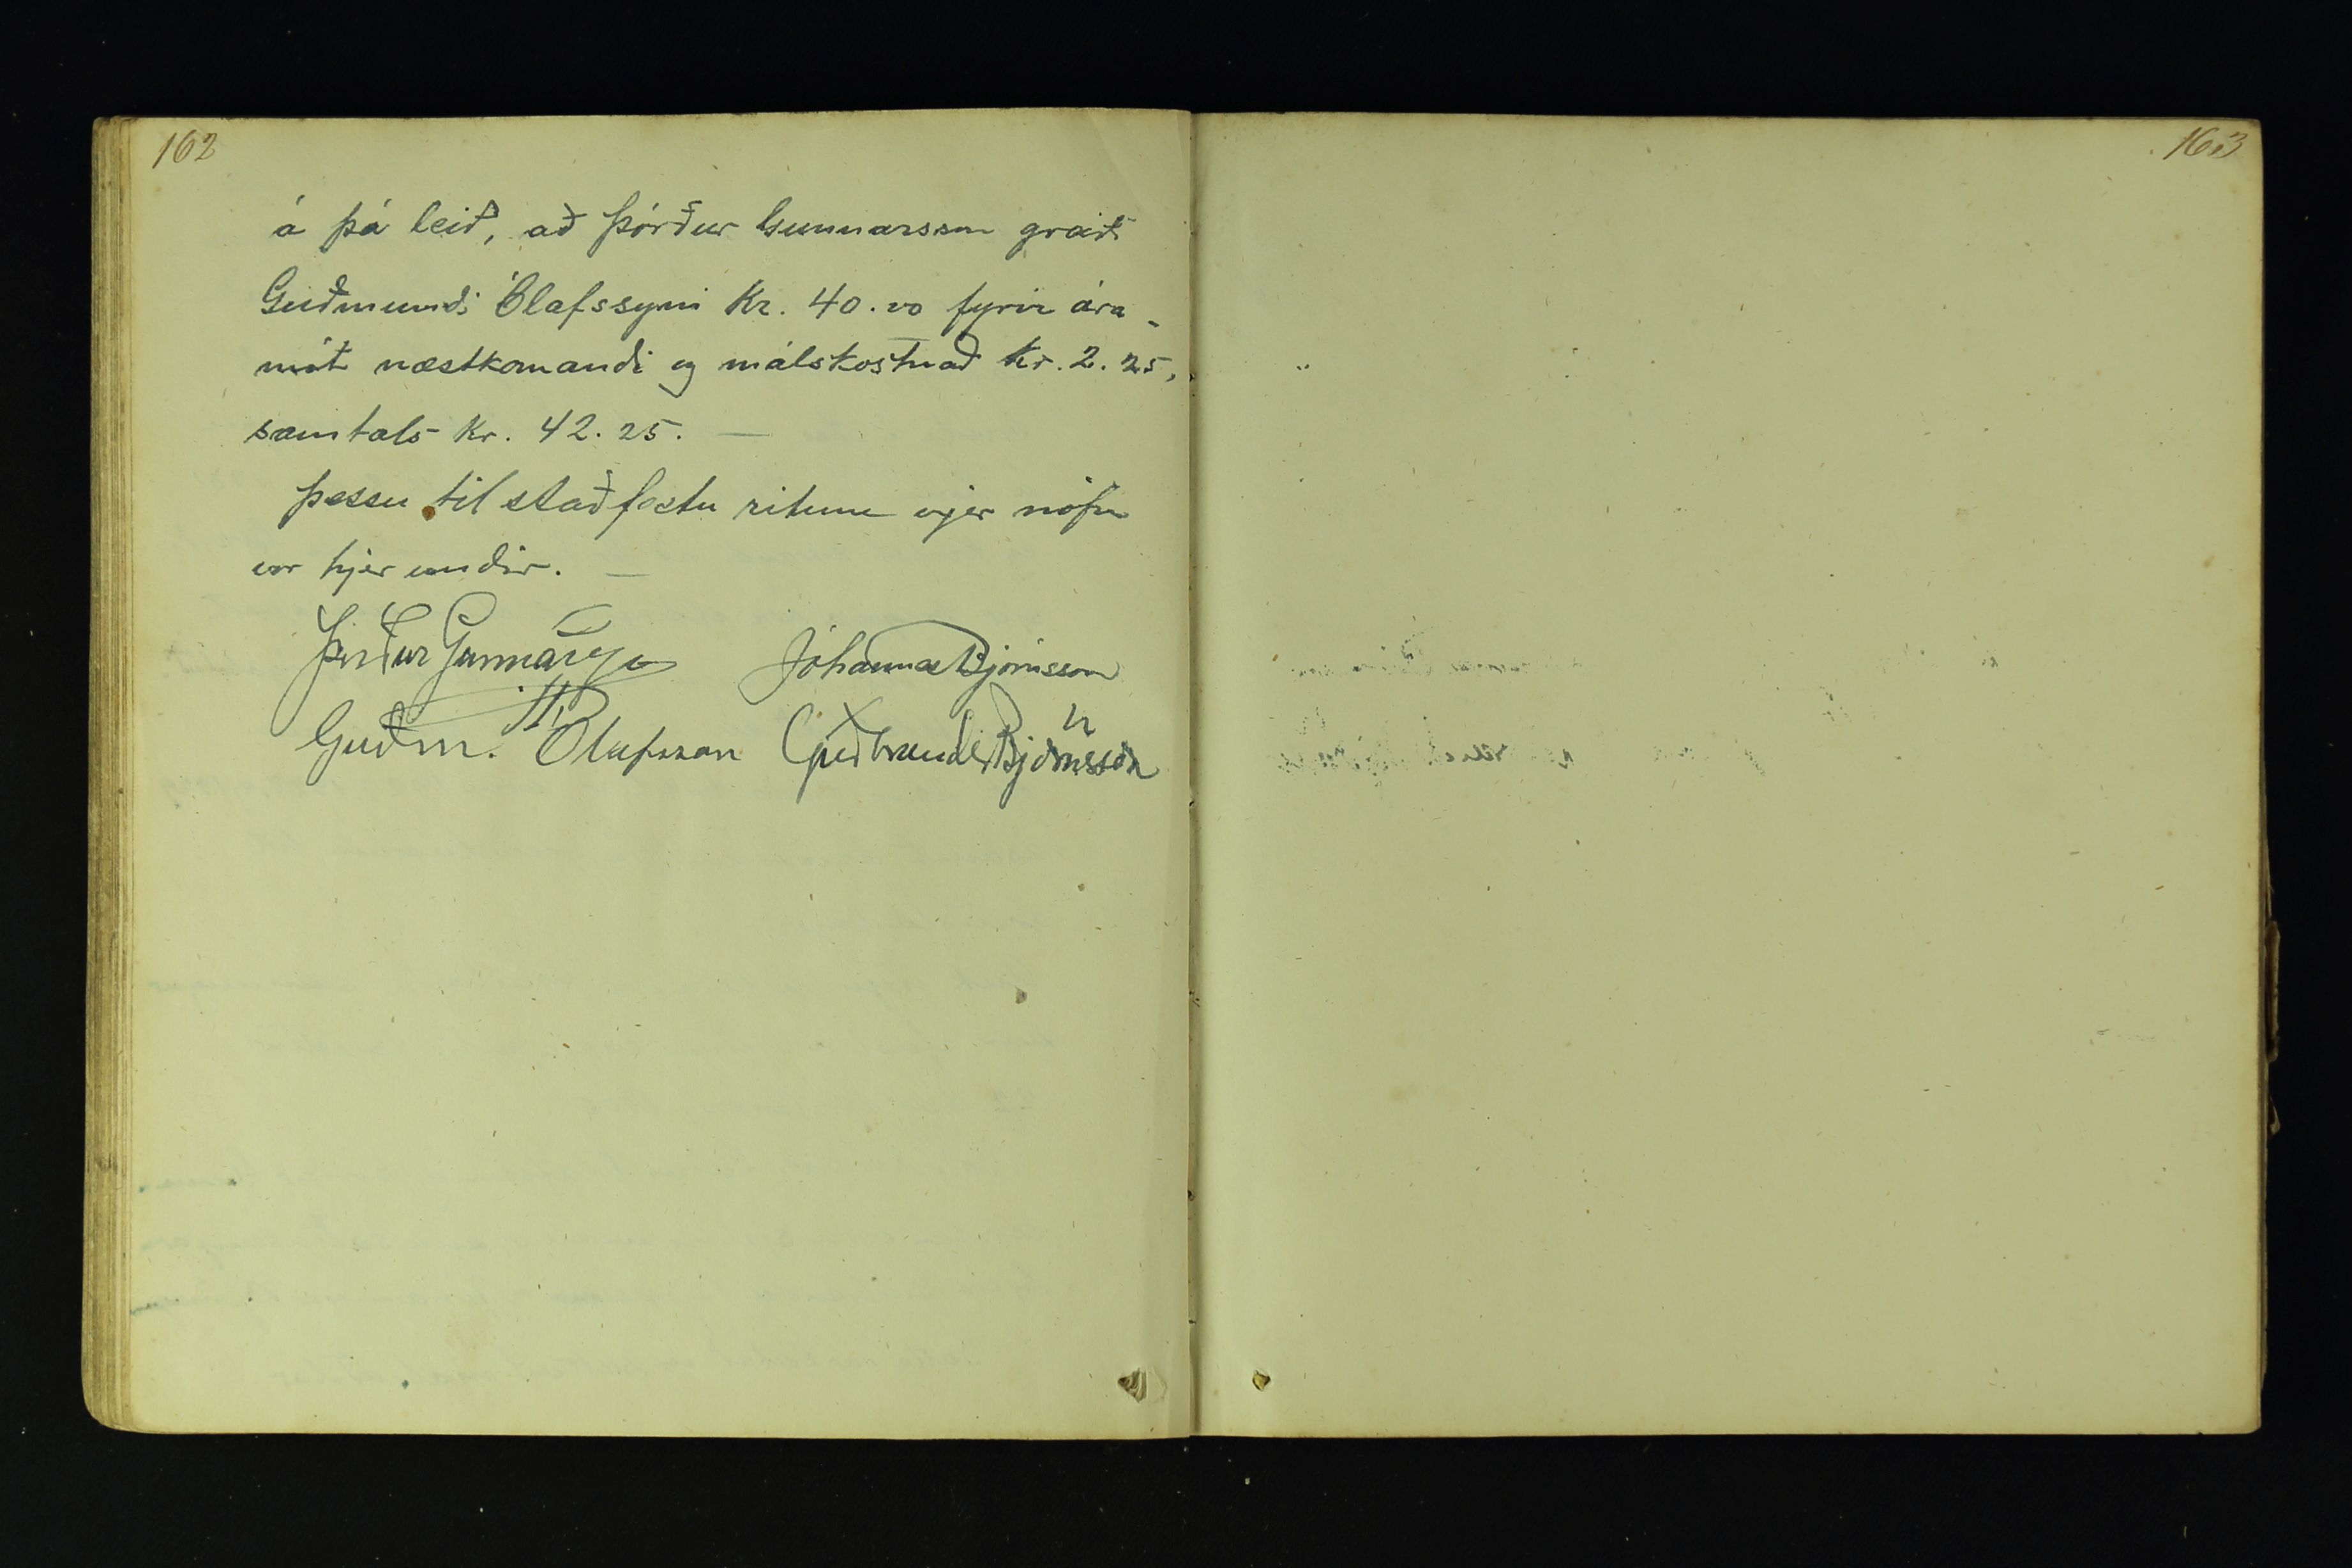 162
á þá leið, að Þórður Gunnarsson greiði
Guðmundi Ólafssyni Kr. 40.00 fyrir ára-
mót næstkomandi og málskostnað Kr. 2.25,
samtals Kr. 42.25. —
Þessu til staðfestu ritum vjer nöfn
vor hjer undir. —
Þórður Gunnarsson Jóhannes Björnsson
Guðm. Ólafsson Guðbrandur Björnsson
163